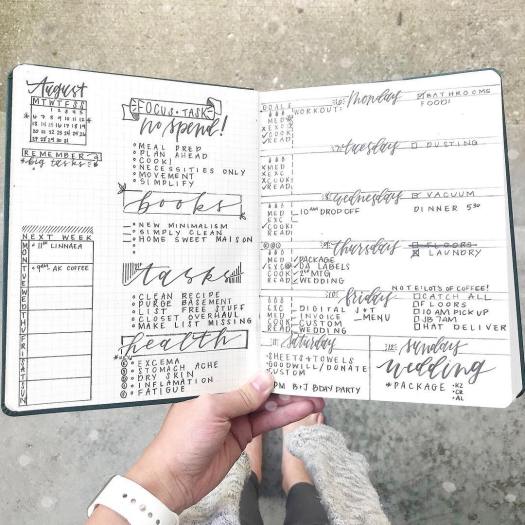 August
M T W T F S S
REMEMBER
*big tasks*
NEXT WEEK
MON
TUE
WED
THU
FRI
SAT
SUN
11am LINNAEA
9am AK COFFEE
FOCUS • TASK
no spend!
• MEAL PREP
• PLAN AHEAD
• COOK!
• NECESSITIES ONLY
• MOVEMENT
• SIMPLIFY
books
NEW MINIMALISM
SIMPLY CLEAN
HOME SWEET MAISON
tasks
• CLEAN RECIPE
• PURGE BASEMENT
• LIST FREE STUFF
• CLOSET OVERHAUL
• MAKE LIST MISSING
health
EXCEMA
STOMACH ACHE
DRY SKIN
INFLAMATION
FATIGUE
GOALS
monday
WORKOUT:
BATHROOMS
FOOD!
MED
EXC
COOK
READ
tuesday
DUSTING
MED
EXC
COOK
READ
wednesday
VACUUM
10AM DROP OFF
DINNER 530
MED
EXC
COOK
READ
thursday
FLOORS
LAUNDRY
MED
EXC
COOK
READ
PACKAGE
OA LABELS
2nd MTG
WEDDING
friday
NOTE! LOTS OF COFFEE!
MED
EXC
COOK
READ
DIGITAL JOT
INVOICE
MENU
CUSTOM
WEDDING
CATCH ALL
FLOORS
10 AM PICK UP
JB 7AM
HAT DELIVER
Saturday
SHEETS + TOWELS
GOODWILL/DONATE
CUSTOM
PM B+J BDAY PARTY
sunday
wedding
*PACKAGE
• KZ
• CR
• AL